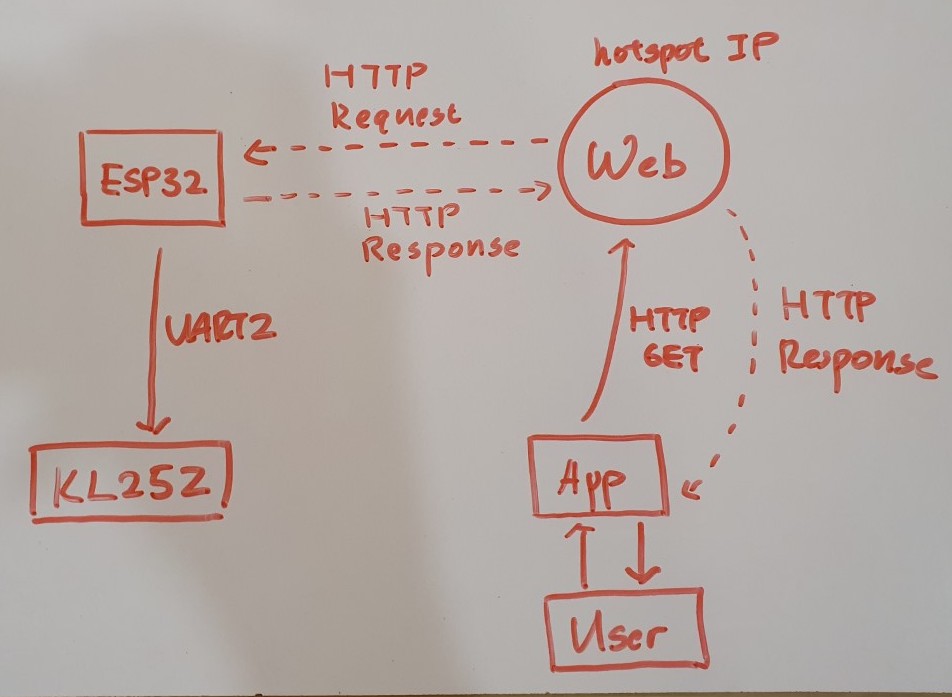 hotspot IP
HTTP
Request
Web
ESP32
HTTP
Response
UART2
HTTP
GET
HTTP
Response
KL25Z
App
User